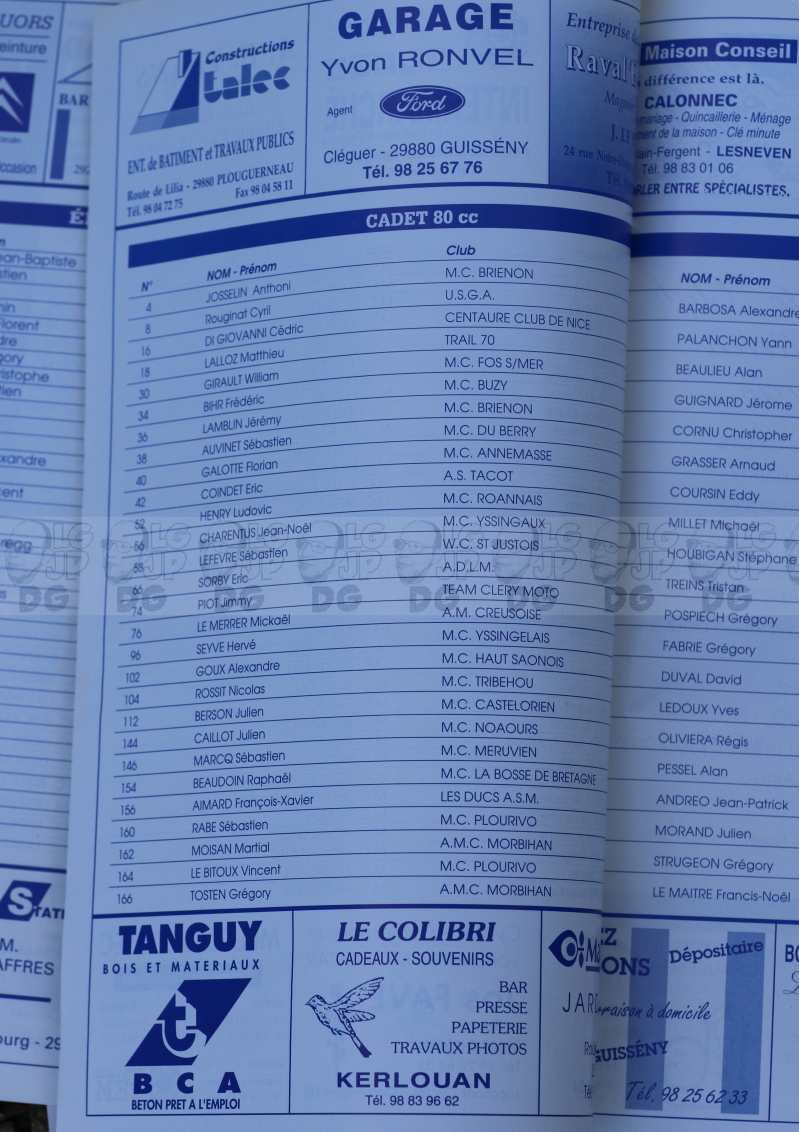 UORS
einture
Citroën
ccasion
BAR
292
Constructions
talec
ENT. de BATIMENT et TRAVAUX PUBLICS
Route de Lilia - 29880 PLOUGUERNEAU
Tél. 98 04 72 75 Fax 98 04 58 11
GARAGE
Yvon RONVEL
Agent Ford
Cléguer - 29880 GUISSÉNY
Tél. 98 25 67 76
Entreprise de
Raval
24 rue Notre-Dame
Maison Conseil
différence est là.
CALONNEC
mariage - Quincaillerie - Ménage
ment de la maison - Clé minute
ain-Fergent - LESNEVEN
Tél. 98 83 01 06
RLER ENTRE SPÉCIALISTES.
CADET 80 cc
N° NOM - Prénom Club
4 JOSSELIN Anthoni M.C. BRIENON
8 Rouginat Cyril U.S.G.A.
16 DI GIOVANNI Cédric CENTAURE CLUB DE NICE
18 LALLOZ Matthieu TRAIL 70
30 GIRAULT William M.C. FOS S/MER
34 BIHR Frédéric M.C. BUZY
36 LAMBLIN Jérémy M.C. BRIENON
38 AUVINET Sébastien M.C. DU BERRY
40 GALOTTE Florian M.C. ANNEMASSE
42 COINDET Eric A.S. TACOT
52 HENRY Ludovic M.C. ROANNAIS
56 CHARENTUS Jean-Noël M.C. YSSINGAUX
58 LEFEVRE Sébastien W.C. ST JUSTOIS
66 SORBY Eric A.D.L.M.
74 PIOT Jimmy TEAM CLERY MOTO
76 LE MERRER Mickaël A.M. CREUSOISE
96 SEYVE Hervé M.C. YSSINGELAIS
102 GOUX Alexandre M.C. HAUT SAONOIS
104 ROSSIT Nicolas M.C. TRIBEHOU
112 BERSON Julien M.C. CASTELORIEN
144 CAILLOT Julien M.C. NOAOURS
146 MARCQ Sébastien M.C. MERUVIEN
154 BEAUDOIN Raphaël M.C. LA BOSSE DE BRETAGNE
156 AIMARD François-Xavier LES DUCS A.S.M.
160 RABE Sébastien M.C. PLOURIVO
162 MOISAN Martial A.M.C. MORBIHAN
164 LE BITOUX Vincent M.C. PLOURIVO
166 TOSTEN Grégory A.M.C. MORBIHAN
NOM - Prénom
BARBOSA Alexandre
PALANCHON Yann
BEAULIEU Alan
GUIGNARD Jérome
CORNU Christopher
GRASSER Arnaud
COURSIN Eddy
MILLET Michaël
HOUBIGAN Stéphane
TREINS Tristan
POSPIECH Grégory
FABRIE Grégory
DUVAL David
LEDOUX Yves
OLIVIERA Régis
PESSEL Alan
ANDREO Jean-Patrick
MORAND Julien
STRUGEON Grégory
LE MAITRE Francis-Noël
TANGUY
BOIS ET MATERIAUX
BCA
BETON PRET A L'EMPLOI
LE COLIBRI
CADEAUX - SOUVENIRS
BAR
PRESSE
PAPETERIE
TRAVAUX PHOTOS
KERLOUAN
Tél. 98 83 96 62
JARD
Dépositaire
Livraison à domicile
GUISSÉNY
Tél. 98 25 62 33
LG
JP
DG